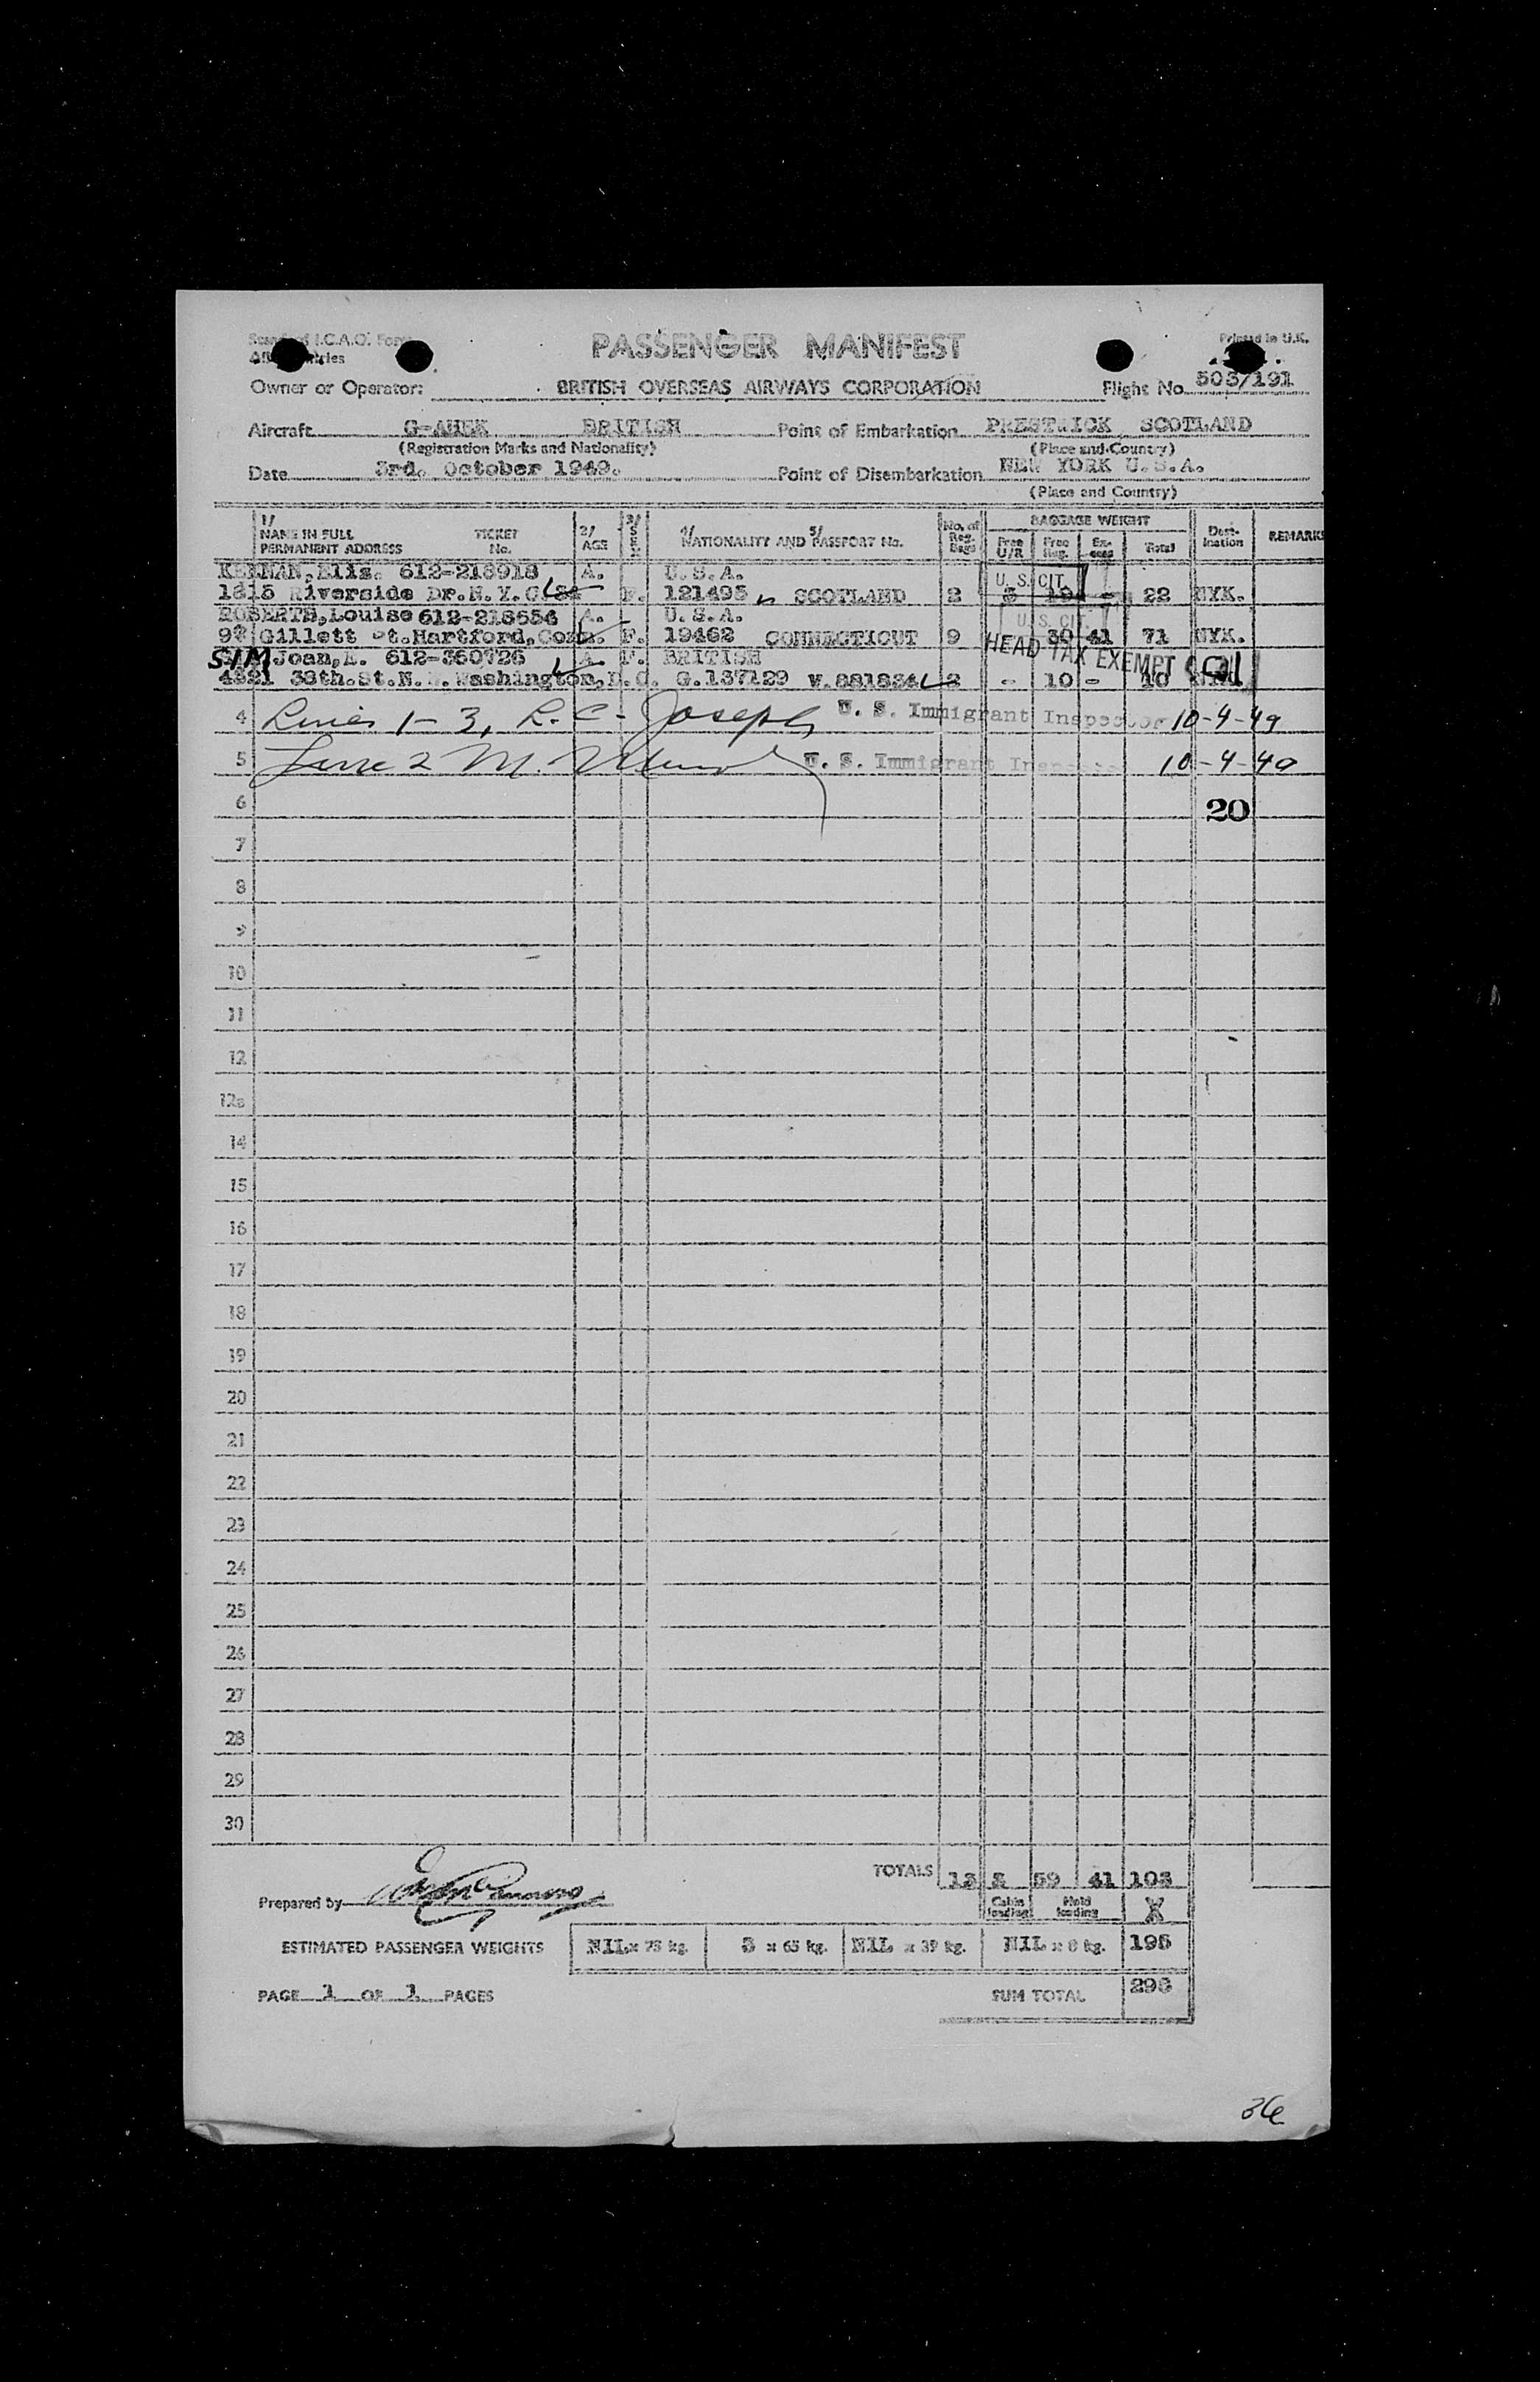 Standard I.C.A.O. Form
PASSENGER MANIFEST
Printed in U.K.
Owner or Operator: BRITISH OVERSEAS AIRWAYS CORPORATION Flight No. 503/191
Aircraft G-AHEK BRITISH Point of Embarkation PRESTWICK SCOTLAND
(Registration Marks and Nationality) (Place and Country)
Date 3rd. October 1949. Point of Disembarkation NEW YORK U.S.A.
(Place and Country)
1/ NAME IN FULL PERMANENT ADDRESS TICKET No. 2/ AGE 3/ SEX 4/ NATIONALITY AND 5/ PASSPORT No. No. of Reg. Bags BAGGAGE WEIGHT Free U/R Free Reg. Excess Total Destination REMARKS
KEENAN, Eliz. 612-218918 A. U.S.A. U. S. CIT.
1815 Riverside Dr. N.Y.C. F. 121495 SCOTLAND 2 3 19 - 22 NYK.
ROBERTS, Louise 612-218654 A. U.S.A. U. S. CIT.
Gillett St. Hartford, Conn. F. 19462 CONNECTICUT 9 30 41 71 NYK.
SIM Joan, 612-360726 A. F. BRITISH HEAD TAX EXEMPT
4821 38th. St. N.W. Washington, D.C. G.137129 2 - 10 - 10
4 Lines 1-3, R.C. Joseph U. S. Immigrant Inspector 10-4-49
5 Line 2 M. U. S. Immigrant Inspector 10-4-49
6 20
7
8
9
10
11
12
12a
14
15
16
17
18
19
20
21
22
23
24
25
26
27
28
29
30
TOTALS 13 3 59 41 103
Prepared by Cabin loading Hold loading
ESTIMATED PASSENGER WEIGHTS NIL x 75 kg. 3 x 65 kg. NIL x 39 kg. NIL x 8 kg. 195
PAGE 1 OF 1 PAGES SUM TOTAL 298